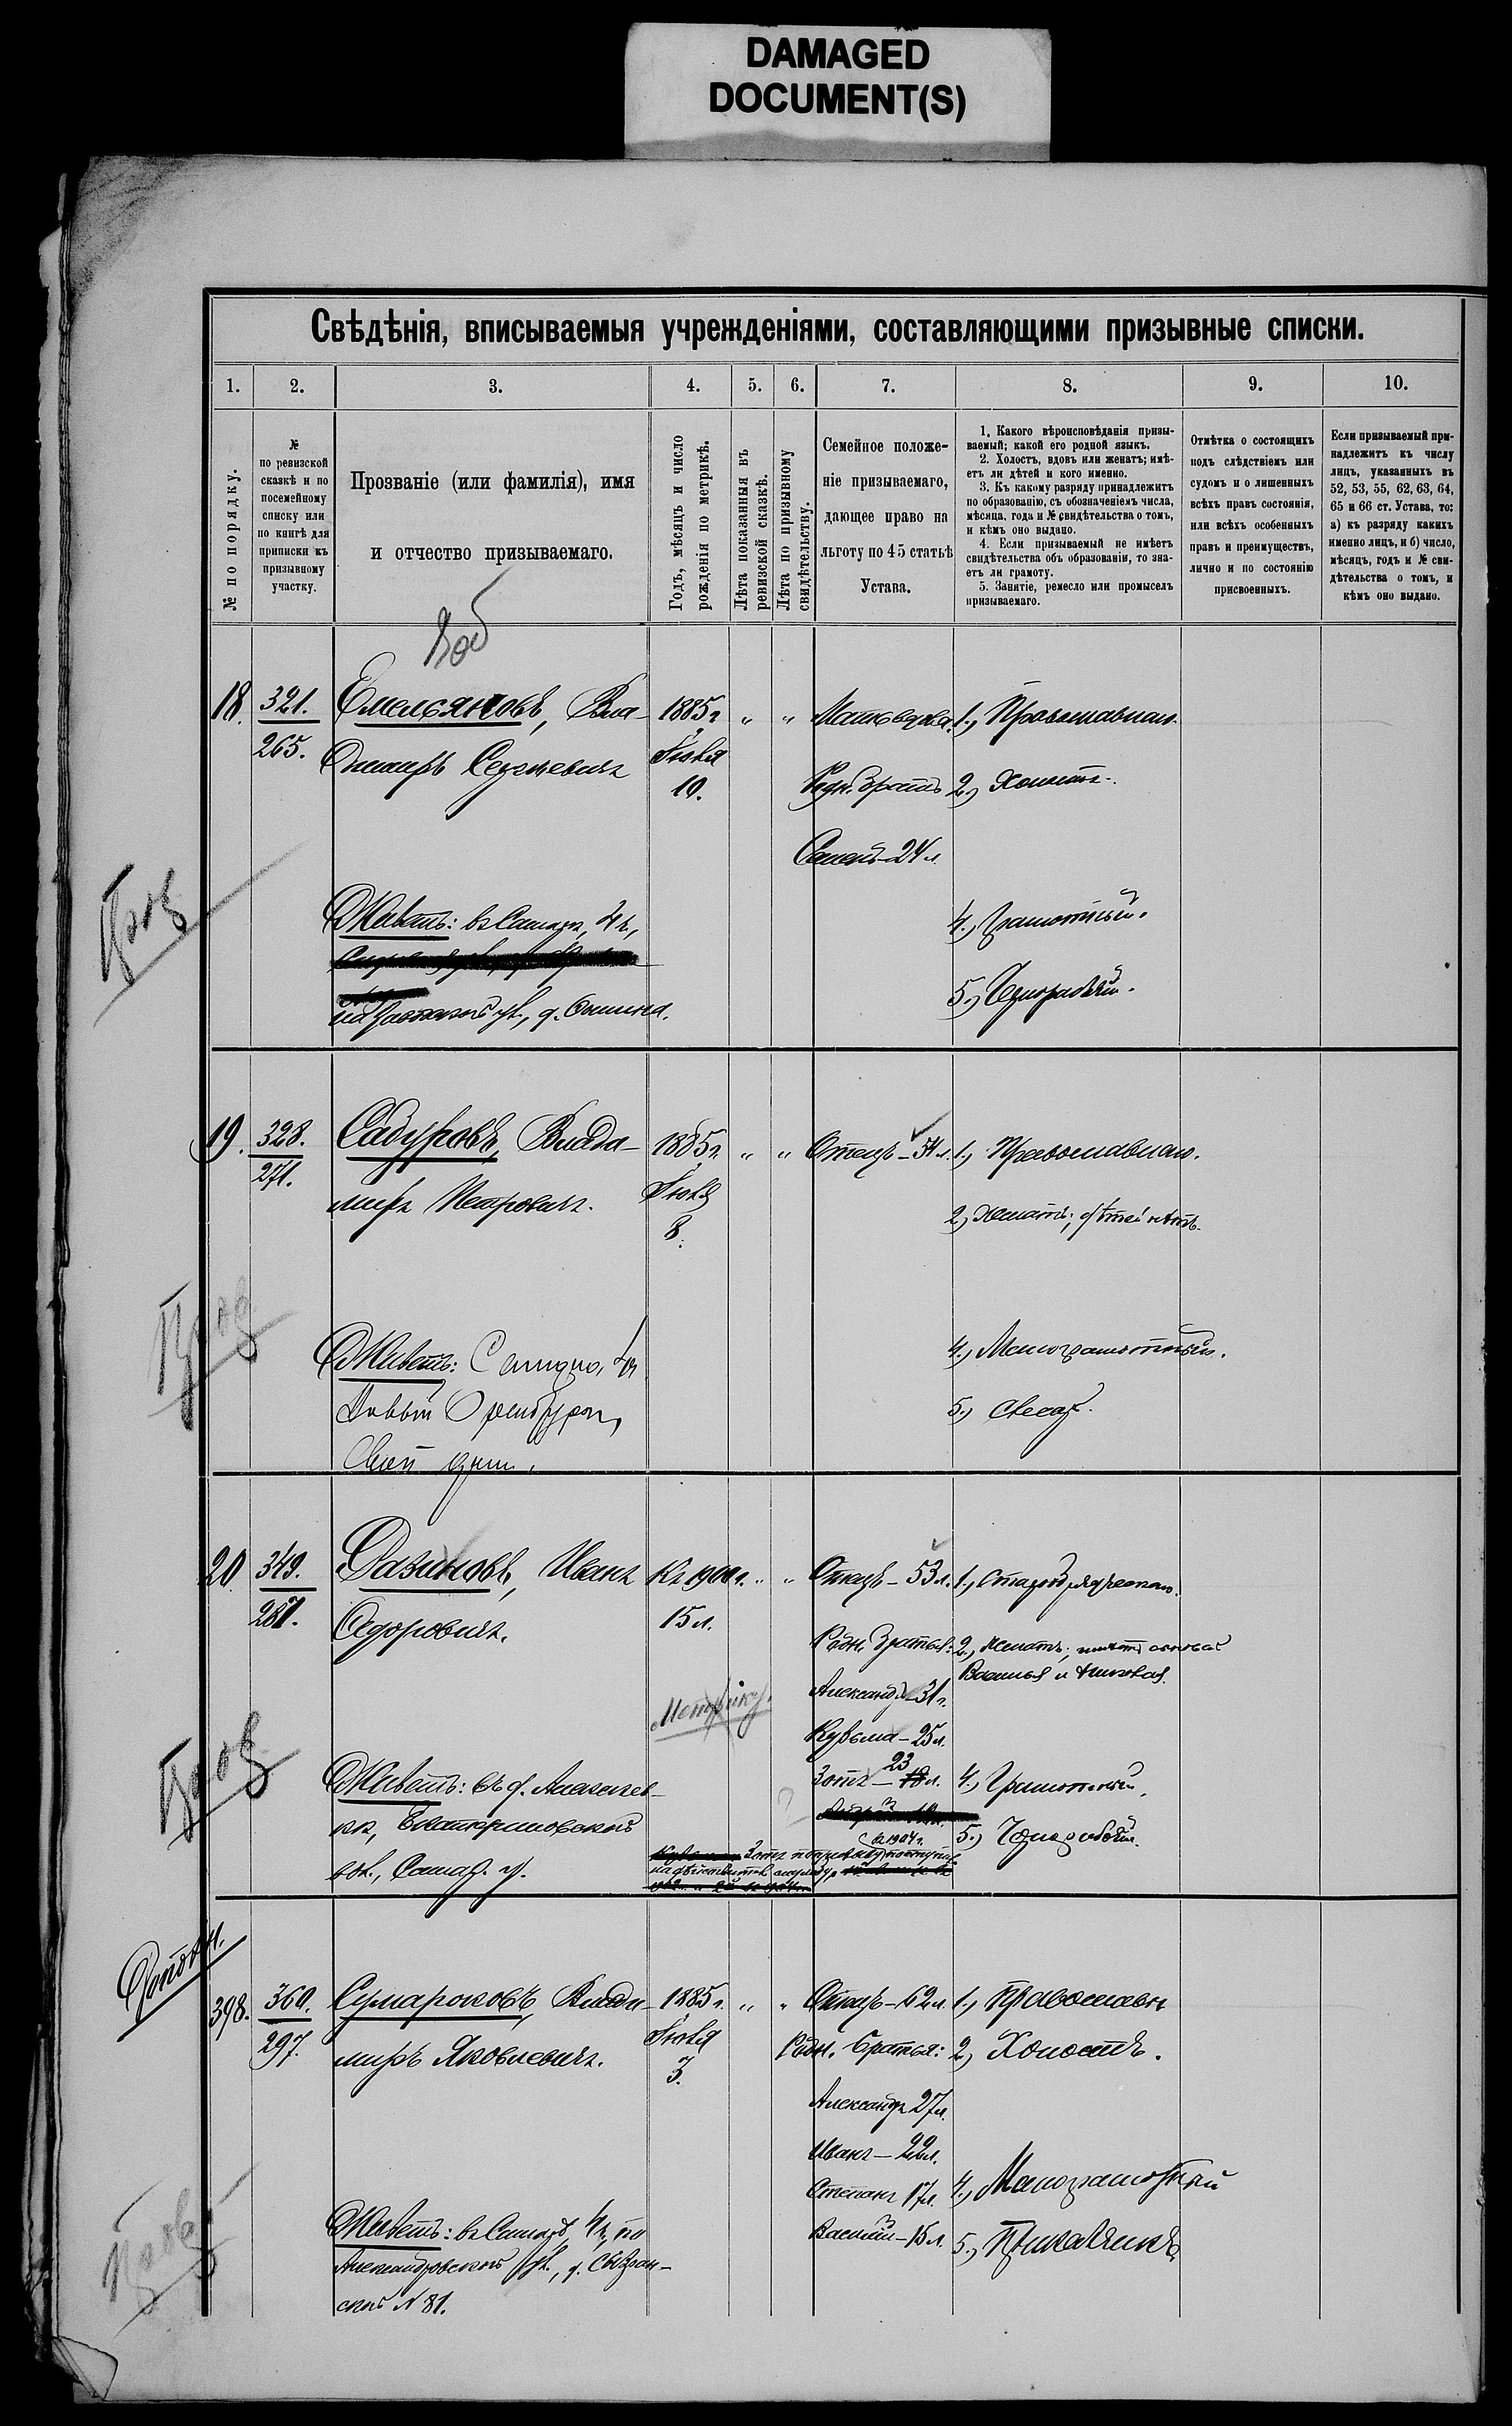 DAMAGED
DOCUMENT(S)
Свѣдѣнія, вписываемыя учрежденіями, составляющими призывные списки.
1. 2. 3. 4. 5. 6. 7. 8. 9. 10.
№ по порядку.
№
по ревизской
сказкѣ и по
посемейному
списку или
по книгѣ для
приписки къ
призывному
участку.
Прозваніе (или фамилія), имя
и отчество призываемаго.
Годъ, мѣсяцъ и число
рожденія по метрикѣ.
Лѣта показанныя въ
ревизской сказкѣ.
Лѣта по призывному
свидѣтельству.
Семейное положе-
ніе призываемаго,
дающее право на
льготу по 45 статьѣ
Устава.
1. Какого вѣроисповѣданія призы-
ваемый; какой его родной языкъ.
2. Холостъ, вдовъ или женатъ; имѣ-
етъ ли дѣтей и кого именно.
3. Къ какому разряду принадлежитъ
по образованію, съ обозначеніемъ числа,
мѣсяца, года и № свидѣтельства о томъ,
и кѣмъ оно выдано.
4. Если призываемый не имѣетъ
свидѣтельства объ образованіи, то зна-
етъ ли грамоту.
5. Занятіе, ремесло или промыселъ
призываемаго.
Отмѣтка о состоящихъ
подъ слѣдствіемъ или
судомъ и о лишенныхъ
всѣхъ правъ состоянія,
или всѣхъ особенныхъ
правъ и преимуществъ,
лично и по состоянію
присвоенныхъ.
Если призываемый при-
надлежитъ къ числу
лицъ, указанныхъ въ
52, 53, 55, 62, 63, 64,
65 и 66 ст. Устава, то:
а) къ разряду какихъ
именно лицъ, и б) число,
мѣсяцъ, годъ и № сви-
дѣтельства о томъ, и
кѣмъ оно выдано.
18. 321. Емельяновъ, Вла- 1885 г. " " Мать вдова. 1., Православнаго.
265. диміръ Сергѣевичъ Іюля
10. Родн. братъ 2., Холостъ.
Семенъ - 24 л.
Живетъ: въ Самарѣ, 4 ч., 4., Грамотный.
5., Чернорабочій.
ул., д.
19. 328. Садуровъ, Влади- 1885 г. " " Отецъ - 54 л. 1., Православнаго.
271. миръ Петровичъ. Іюля
8. 2., Женатъ; дѣтей нѣтъ.
Живетъ: Самара, 4 ч 4., Малограмотный.
Новый Оренбургъ, 5., Слесарь.
Свой домъ.
20 349. Разиновъ, Иванъ Къ 1900 г. " " Отецъ - 53 л. 1.,
287. Ѳедоровичъ. 15 л.
Родн. братья: 2., Женатъ;
Александръ - 31 г. Василья и Николая.
Метрику. Кузьма - 25 л.
23
Зотъ - 18 л. 4., Грамотный.
Живетъ: въ д. Алексѣев-
кѣ, Екатериновской 5., Чернорабочій.
вол., Самар. у.
въ 1904 г.
Зотъ
Дополн.
398. 360. Сумароковъ, Влади- 1885 г. " " Отецъ - 62 л. 1., Православн
297. миръ Яковлевичъ. Іюля
3. Родн. братья: 2., Холостъ.
Александръ 27 л.
Иванъ - 22 л.
Степанъ 17 л. 4., Малограмотный
Василій - 15 л. 5., Прикащикъ
Живетъ: въ Самарѣ, 4 ч., по
Александровской ул., д. Сызран-
ской № 81.